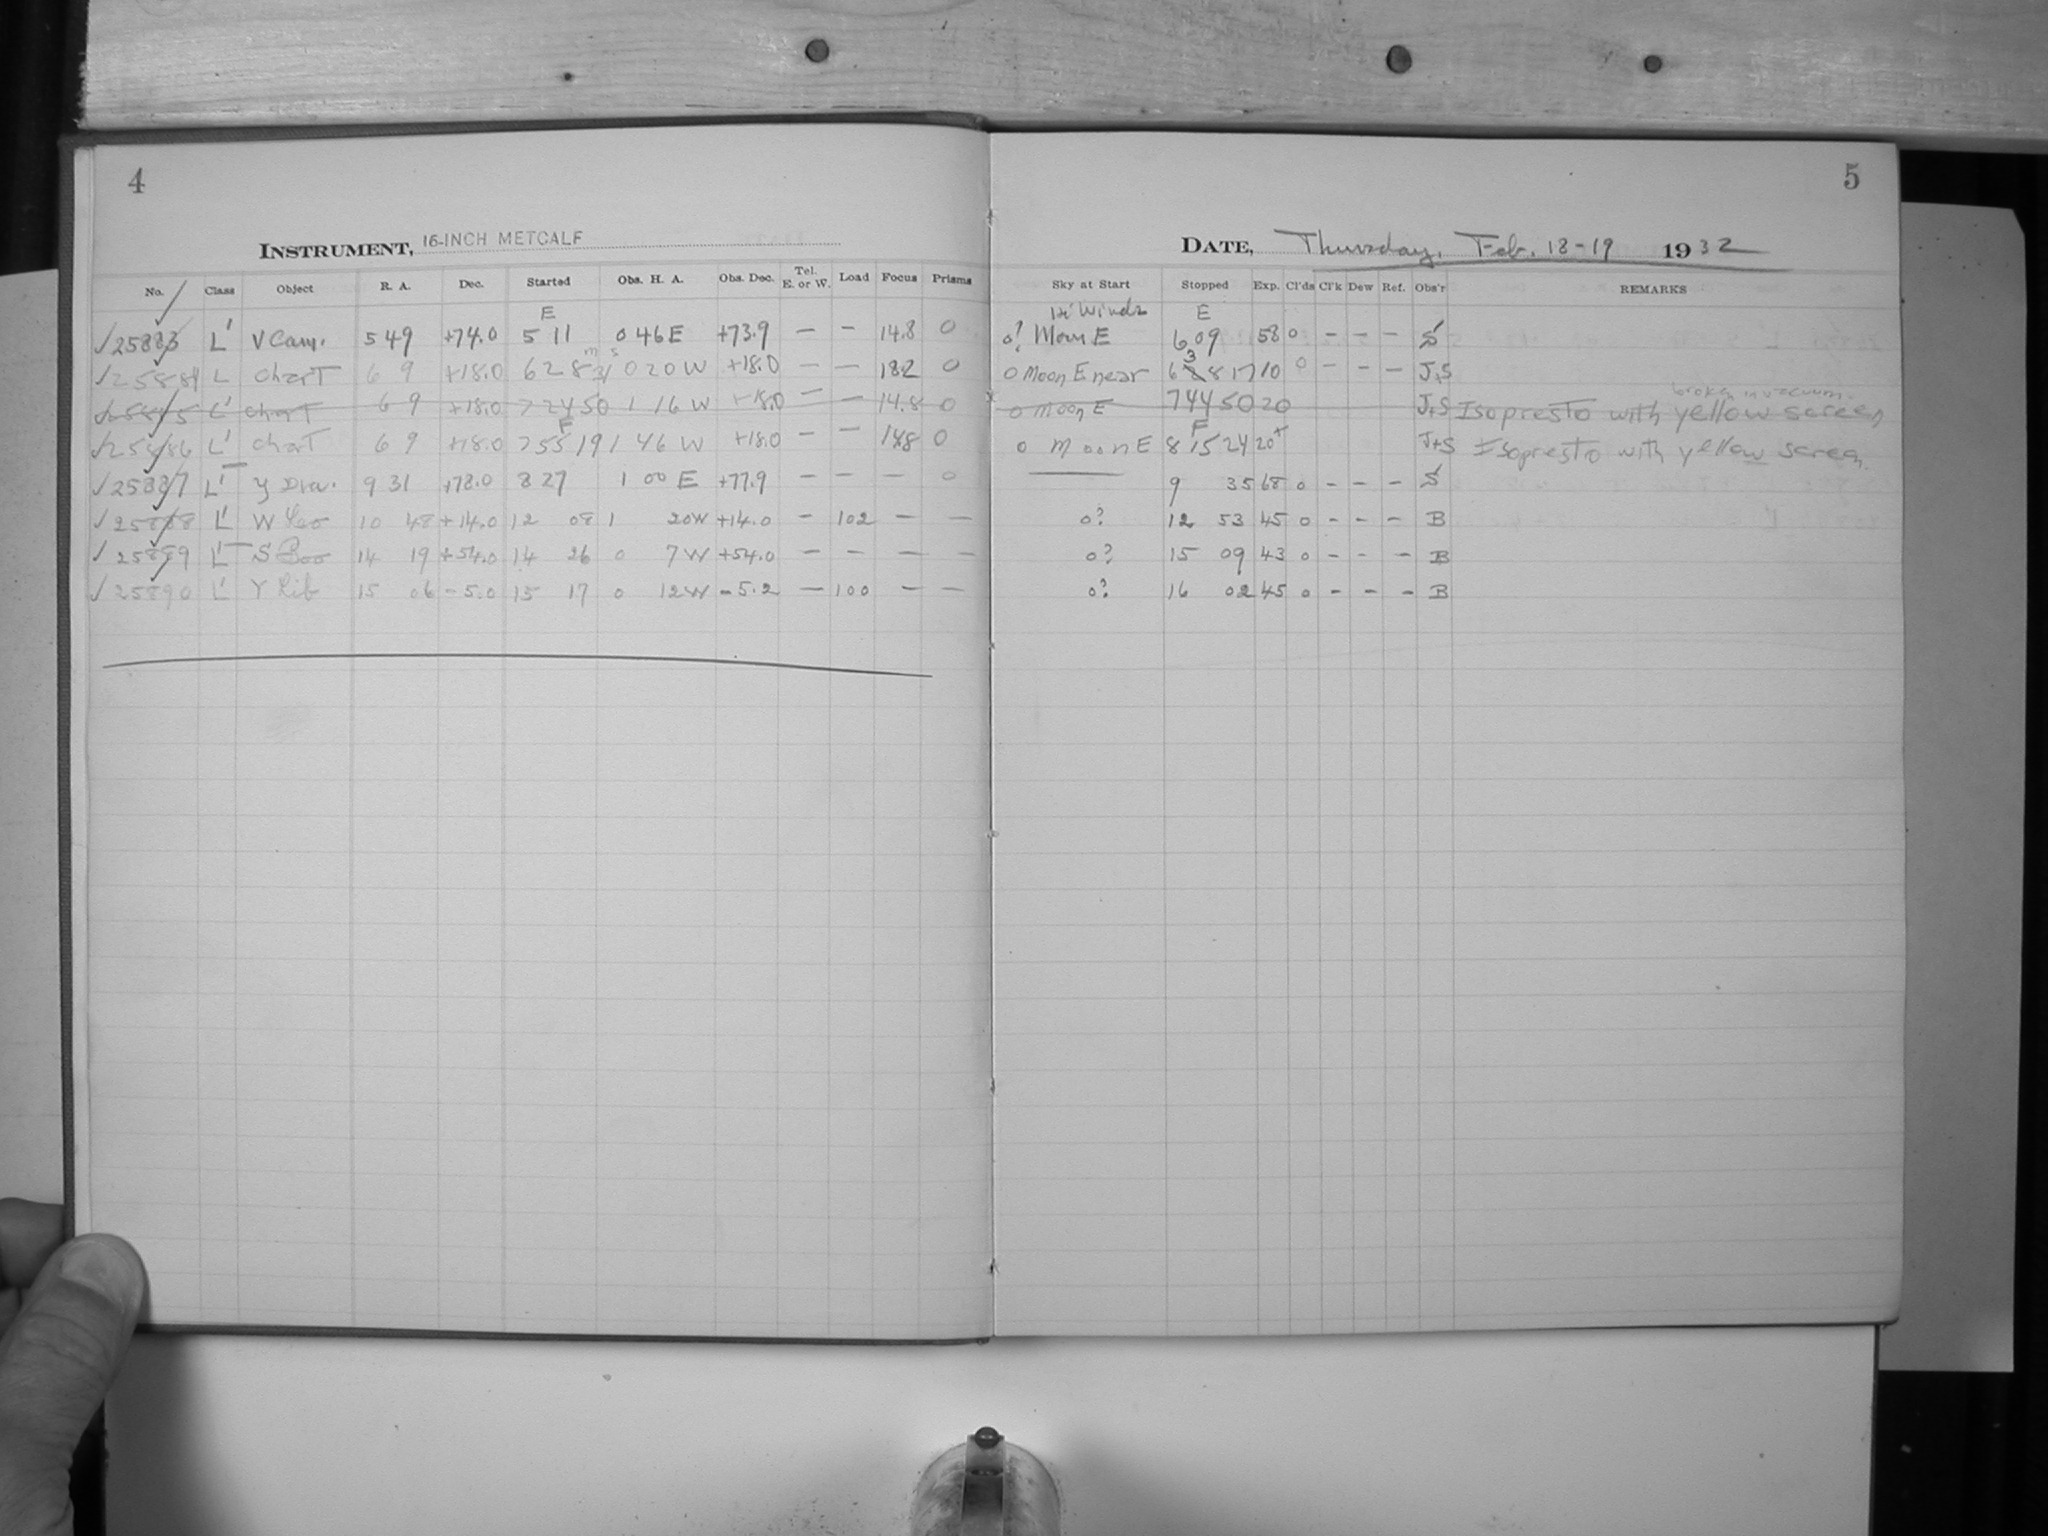 4
INSTRUMENT, 16-INCH METCALF
No. Class Object R. A. Dec. Started Obs. H. A. Obs. Dec. Tel. E. or W. Load Focus Prisms
E
√25883 L' V Cam. 5 49 +74.0 5 11 0 46 E +73.9 — — 14.8 0
m s
√25884 L chart 6 9 +18.0 6 28 31 0 20 W +18.0 — — 18.2 0
25885 L' chart 6 9 +18.0 7 24 50 1 16 W +18.0 — — 14.8 0
F
√25886 L' chart 6 9 +18.0 7 55 19 1 46 W +18.0 — — 0
√25887 L' Y Dra. 9 31 +78.0 8 27 1 00 E +77.9 — — — 0
√25888 L' W Leo 10 48 +14.0 12 08 1 20W +14.0 — 102 — —
√25889 L' S Boo 14 19 +54.0 14 26 0 7 W +54.0 — — — —
√25890 L' Y Lib 15 06 -5.0 15 17 0 12W -5.2 — 100 — —
5
DATE, Thursday, Feb. 18-19 1932
Sky at Start Stopped Exp. Cl'ds Cl'k Dew Ref. Obs'r REMARKS
Hi Winds E
0? Moon E 6 09 58 0 - - - S
3
0 Moon E near 6 8 17 10 0 - - - J+S
broken in vacuum.
0 Moon E 7 44 50 20 J+S Isopresto with yellow screen
F
0 Moon E 8 15 24 20+ J+S Isopresto with yellow screen
— 9 35 68 0 - - - S
0? 12 53 45 0 - - - B
0? 15 09 43 0 - - - B
0? 16 02 45 0 - - - B